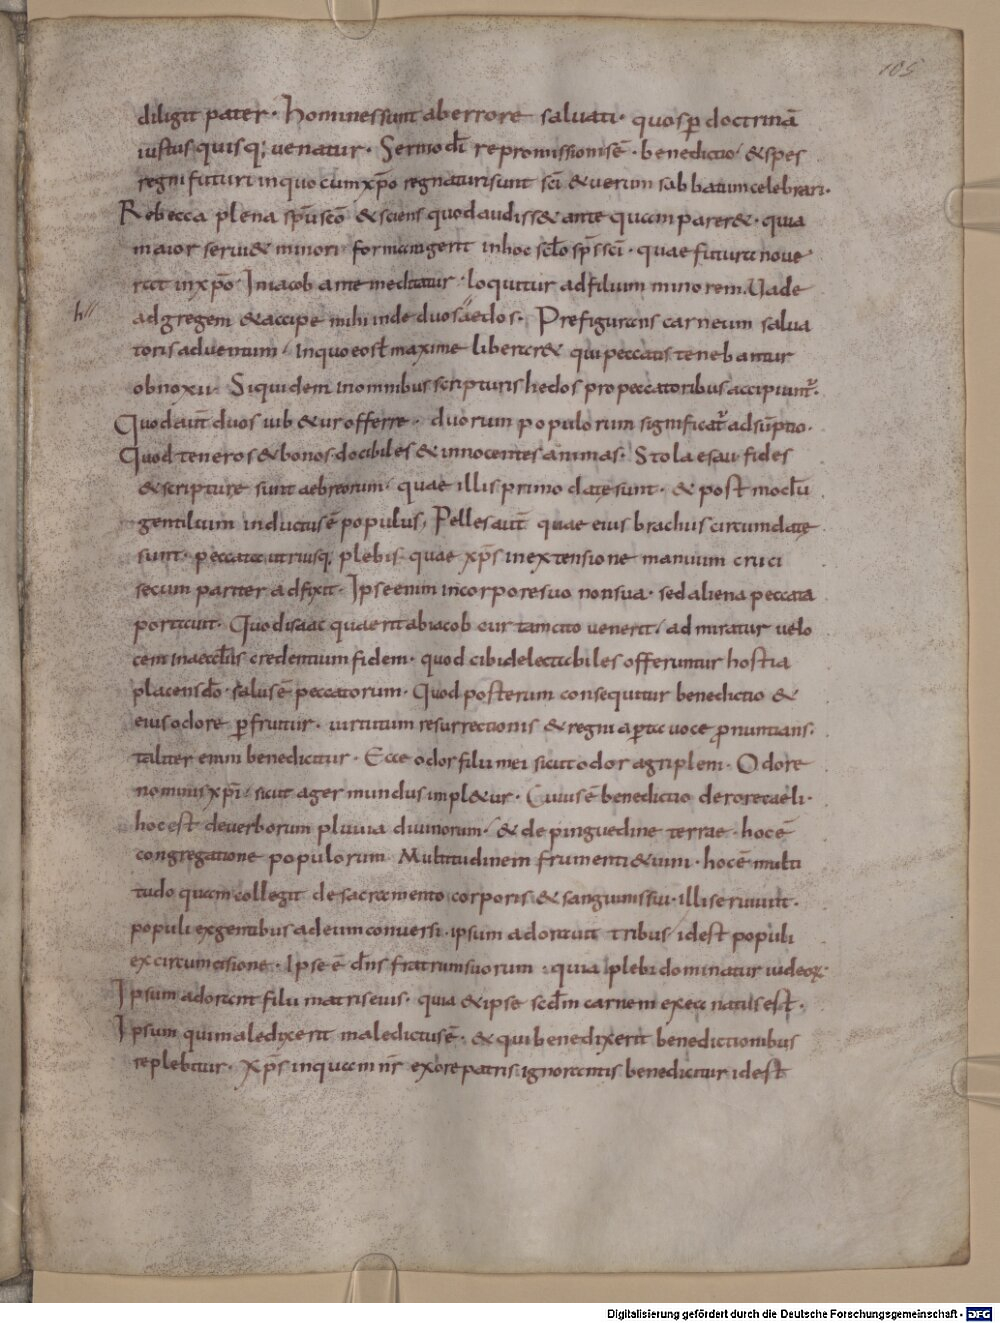 105
diligit pater · Hominessunt aberrore saluati · quosp̄ doctrinā
iustus quisq; uenatur · Sermo dī repromissionisē · benedictio / &spes
regni futuri inquo cumxp̄o regnaturisunt sc̄i &uerum sabbatumcelebrari·
Rebecca plena sp̄u sc̄o &sciens quodaudiss& ante quam parer& · quia
maior serui& minori formamgerit inhoc sclo sp̄s sc̄i · quae futura noue
rat inxp̄o / Iniacob ante meditatur · loquitur adfilium minorem. Uade
h//
adgregem &accipe mihi inde duos //aedos · Prefigurans carneum salua
toris aduentum / Inquo eost maxime liberar& qui peccatis tenebantur
obnoxii · Siquidem inomnibus scripturis hedos propeccatoribus accipiunt̄·
Quodaut̄ duos iub&ur offerre · duorum populorum significat̄ adsūptio ·
Quod teneros &bonos · docibiles &innocentes animas · Stola esau fides
&scripturę sunt aebreorum · quae illis primo datę sunt · & post modū
gentilium inductusē populus / Pellesaut̄ quae eius brachiis circumdatę
sunt · peccata utriusq; plebis quae xp̄s inextensione manuum cruci
secum pariter adfixit · Ipse enim incorporesuo nonsua · sed aliena peccata
portauit · Quodisaac quaerit abiacob cur tam cito uenerit / admiratur uelo
cem inaecclis credentium fidem · quod cibidelectabiles offeruntur hostia
placensdō · salusē peccatorum · Quod posterum consequitur benedictio &
eius odore p̄fruitur · uirtutum resurrectionis & regni ap̄ta uoce p̄nuntians·
taliter enim benedicitur · Ecce odor filii mei sicut odor agri pleni · Odore
nominis xp̄i / sicut ager mundus impl&ur · Cuiusē benedictio derorecaeli·
hocest deuerborum pluuia diuinorum / & de pinguedine terrae · hocē
congregatione populorum Multitudinem frumenti &uini · hocē multi
tudo quam collegit de sacramento corporis & sanguinissui · illi seruiunt ·
populi exgentibus adeumconuersi · ipsum adorauit tribus / idest populi
excircumcisione · Ipse ē dn̄s fratrumsuorum : quia plebi dominatur iudeoꝝ
Ipsum adorant filii matriseius · quia &ipse scdm carnem exea natusest ·
Ipsum quimaledixerit maledictusē · & qui benedixerit benedictionibus
replebitur · Xp̄s inquam nr̄ exore patris ignorantis benedicitur idest
Digitalisierung gefördert durch die Deutsche Forschungsgemeinschaft - DFG